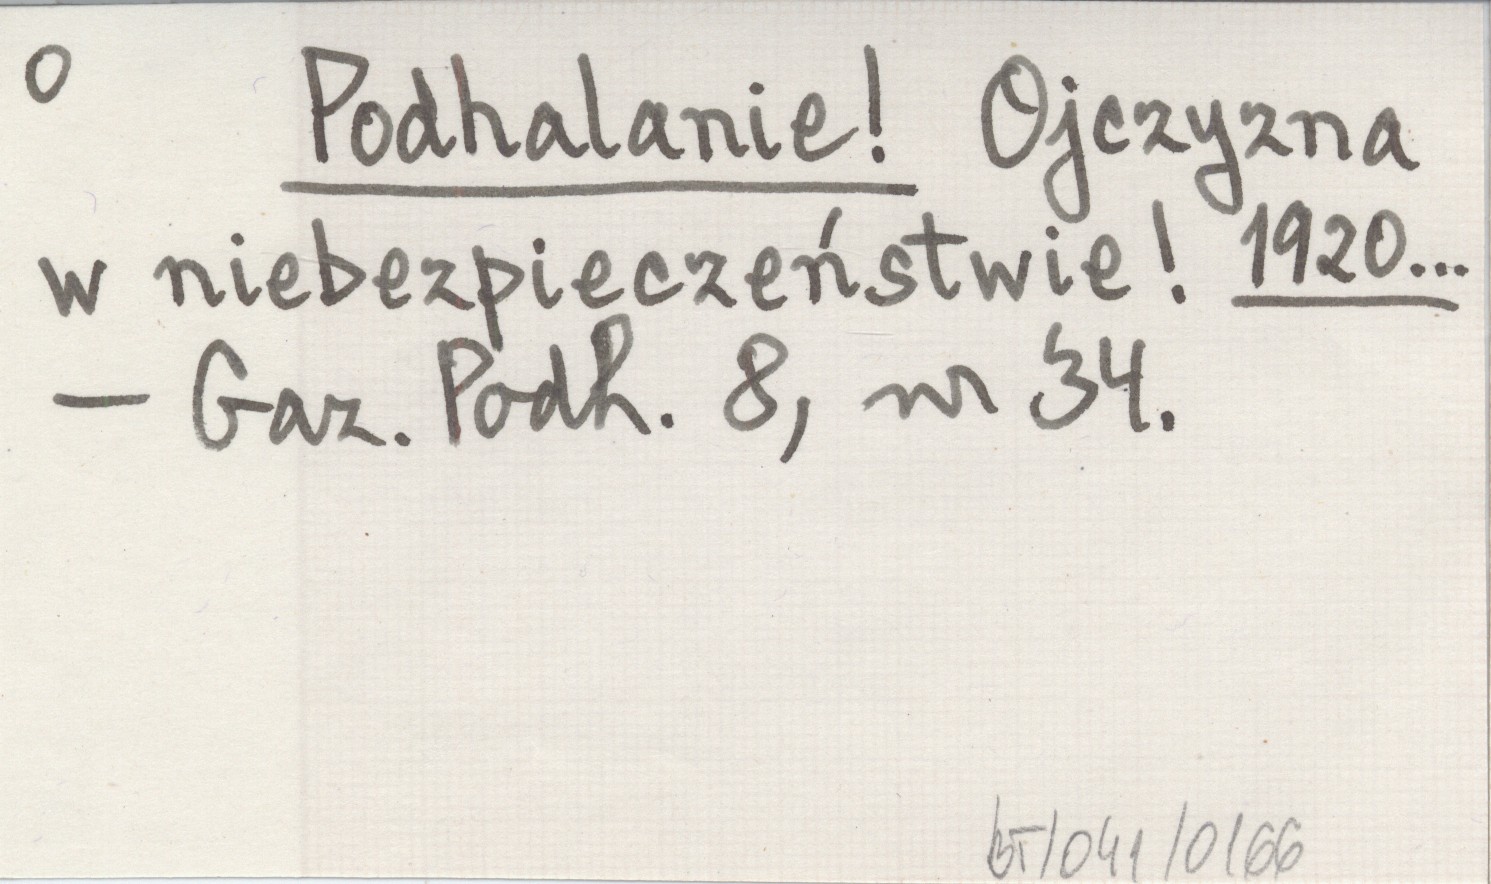 O Podhalanie! Ojczyzna
w niebezpieczeństwie! 1920...
— Gaz. Podh. 8, nr 34.
BT/041/0166